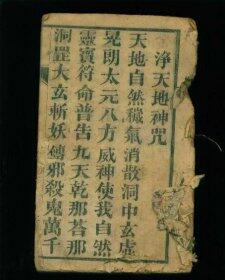 淨天地神咒
天地自然穢氣消散洞中玄虛
晃朗太元八方威神使我自然
靈寶符命普告九天乾那荅那
洞罡大玄斬妖縛邪殺鬼萬千